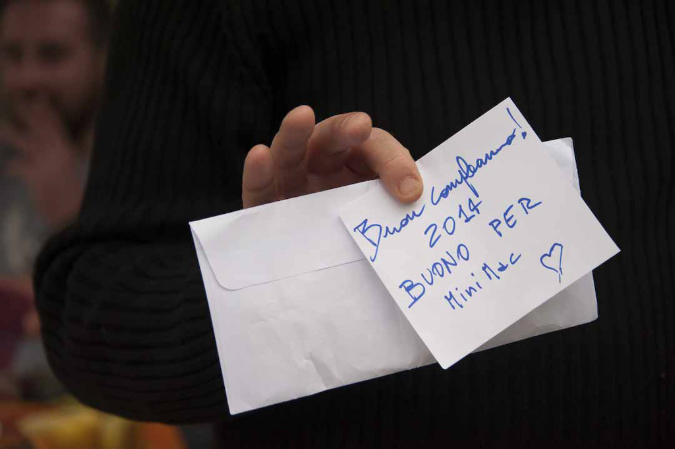 Buon compleanno!
2014
BUONO PER
MiniMac ♡